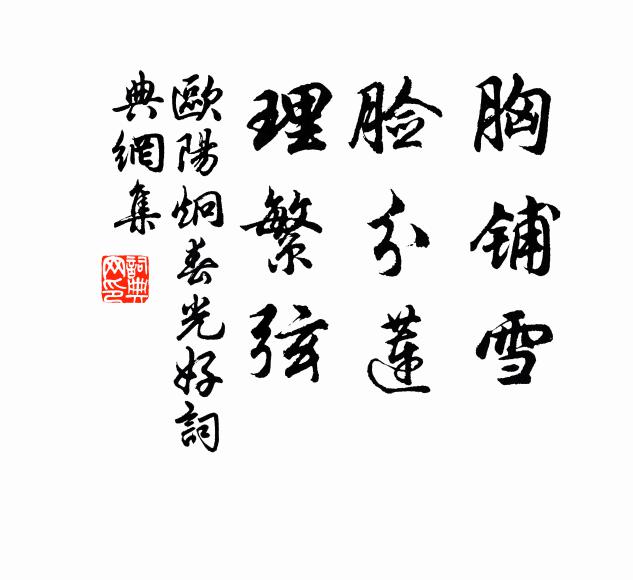 胸铺雪
脸分莲
理繁弦
歐陽炯春光好詞
典網集
詞典網印